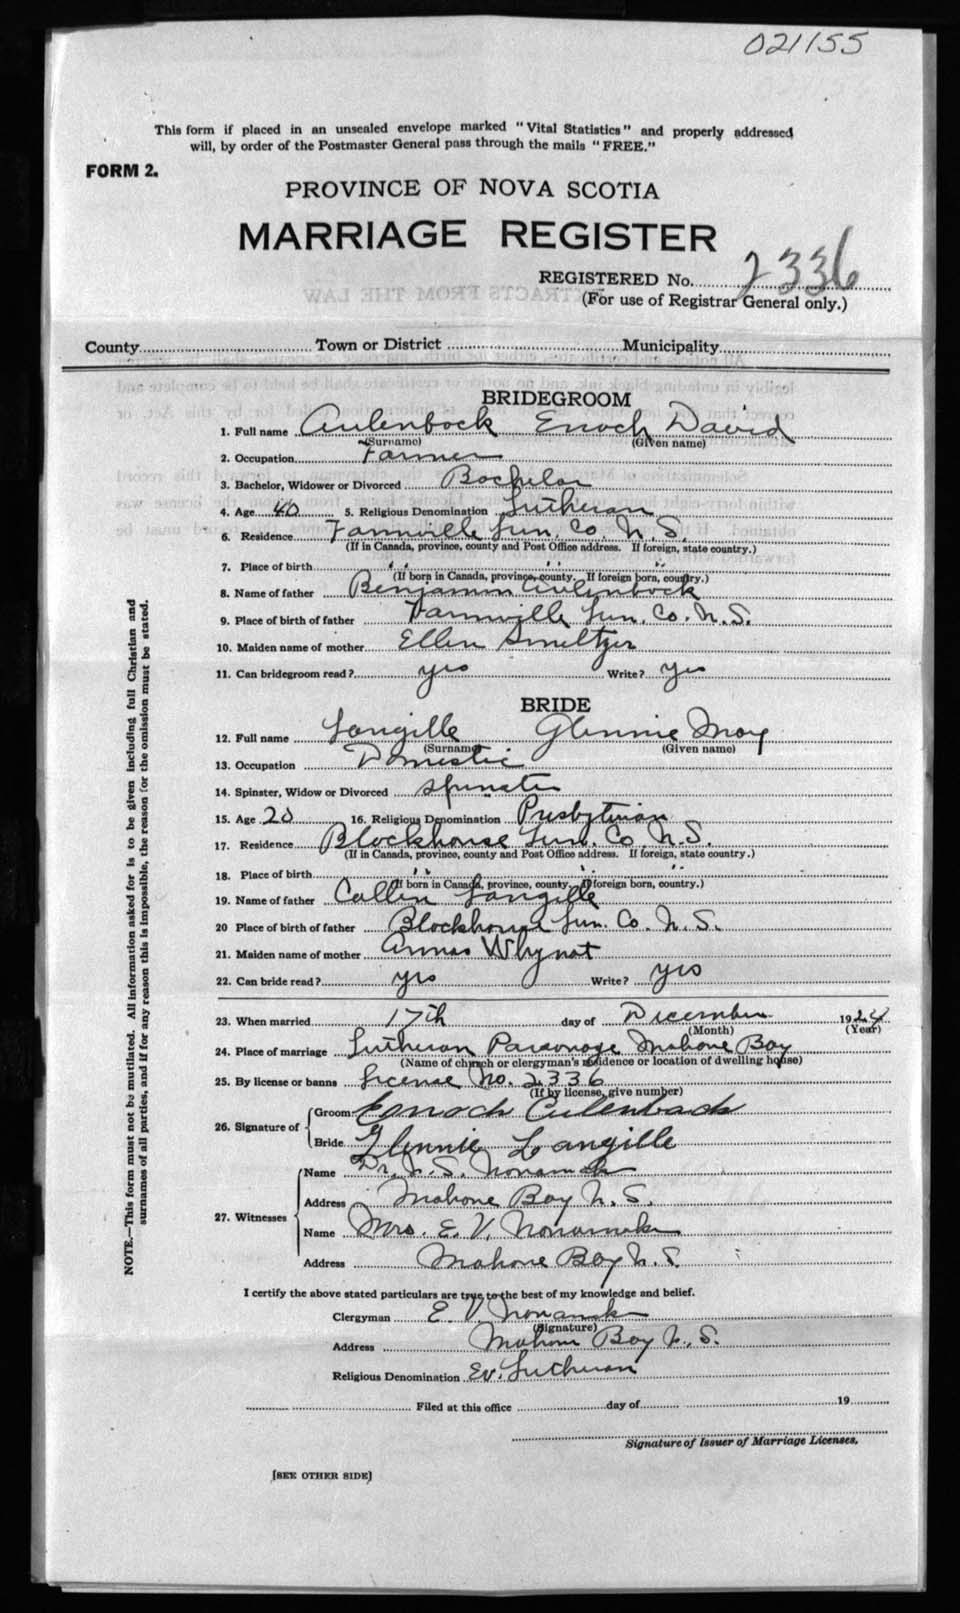 021155
This form if placed in an unsealed envelope marked "Vital Statistics" and properly addressed
will, by order of the Postmaster General pass through the mails "FREE."
FORM 2.
PROVINCE OF NOVA SCOTIA
MARRIAGE REGISTER
REGISTERED No. 2336
(For use of Registrar General only.)
County Town or District Municipality
BRIDEGROOM
1. Full name Aulenbock Enoch David
(Surname) (Given name)
2. Occupation Farmer
3. Bachelor, Widower or Divorced Bachelor
4. Age 40 5. Religious Denomination Lutheran
6. Residence Fannville Lun. Co. N. S.
(If in Canada, province, county and Post Office address. If foreign, state country.)
7. Place of birth " " "
(If born in Canada, province, county. If foreign born, country.)
8. Name of father Benjamin Aulenbock
9. Place of birth of father Fannville Lun. Co. N. S.
10. Maiden name of mother Ellen Smeltzer
11. Can bridegroom read? yes Write? yes
BRIDE
12. Full name Langille Glennie May
(Surname) (Given name)
13. Occupation Domestic
14. Spinster, Widow or Divorced Spinster
15. Age 20 16. Religious Denomination Presbyterian
17. Residence Blockhouse Lun. Co. N. S.
(If in Canada, province, county and Post Office address. If foreign, state country.)
18. Place of birth " " "
(If born in Canada, province, county. If foreign born, country.)
19. Name of father Callin Langille
20 Place of birth of father Blockhouse Lun. Co. N. S.
21. Maiden name of mother Annas Whynot
22. Can bride read? yes Write? yes
23. When married 17th day of December 1924
(Month) (Year)
24. Place of marriage Lutheran Parsonage Mahone Bay
(Name of church or clergyman's residence or location of dwelling house)
25. By license or banns License No. 2336
(If by license, give number)
26. Signature of Groom Enoch Aulenback
Bride Glennie Langille
27. Witnesses Name Dr. S. Nonamaker
Address Mahone Bay N. S.
Name Mrs. E. V. Nonamaker
Address Mahone Bay N. S.
I certify the above stated particulars are true to the best of my knowledge and belief.
Clergyman E. V. Nonamaker
(Signature)
Address Mahone Bay N. S.
Religious Denomination Ev. Lutheran
Filed at this office day of 19
Signature of Issuer of Marriage Licenses.
(SEE OTHER SIDE)
NOTE.—This form must not be mutilated. All information asked for is to be given including full Christian and
surnames of all parties, and if for any reason this is impossible, the reason for the omission must be stated.